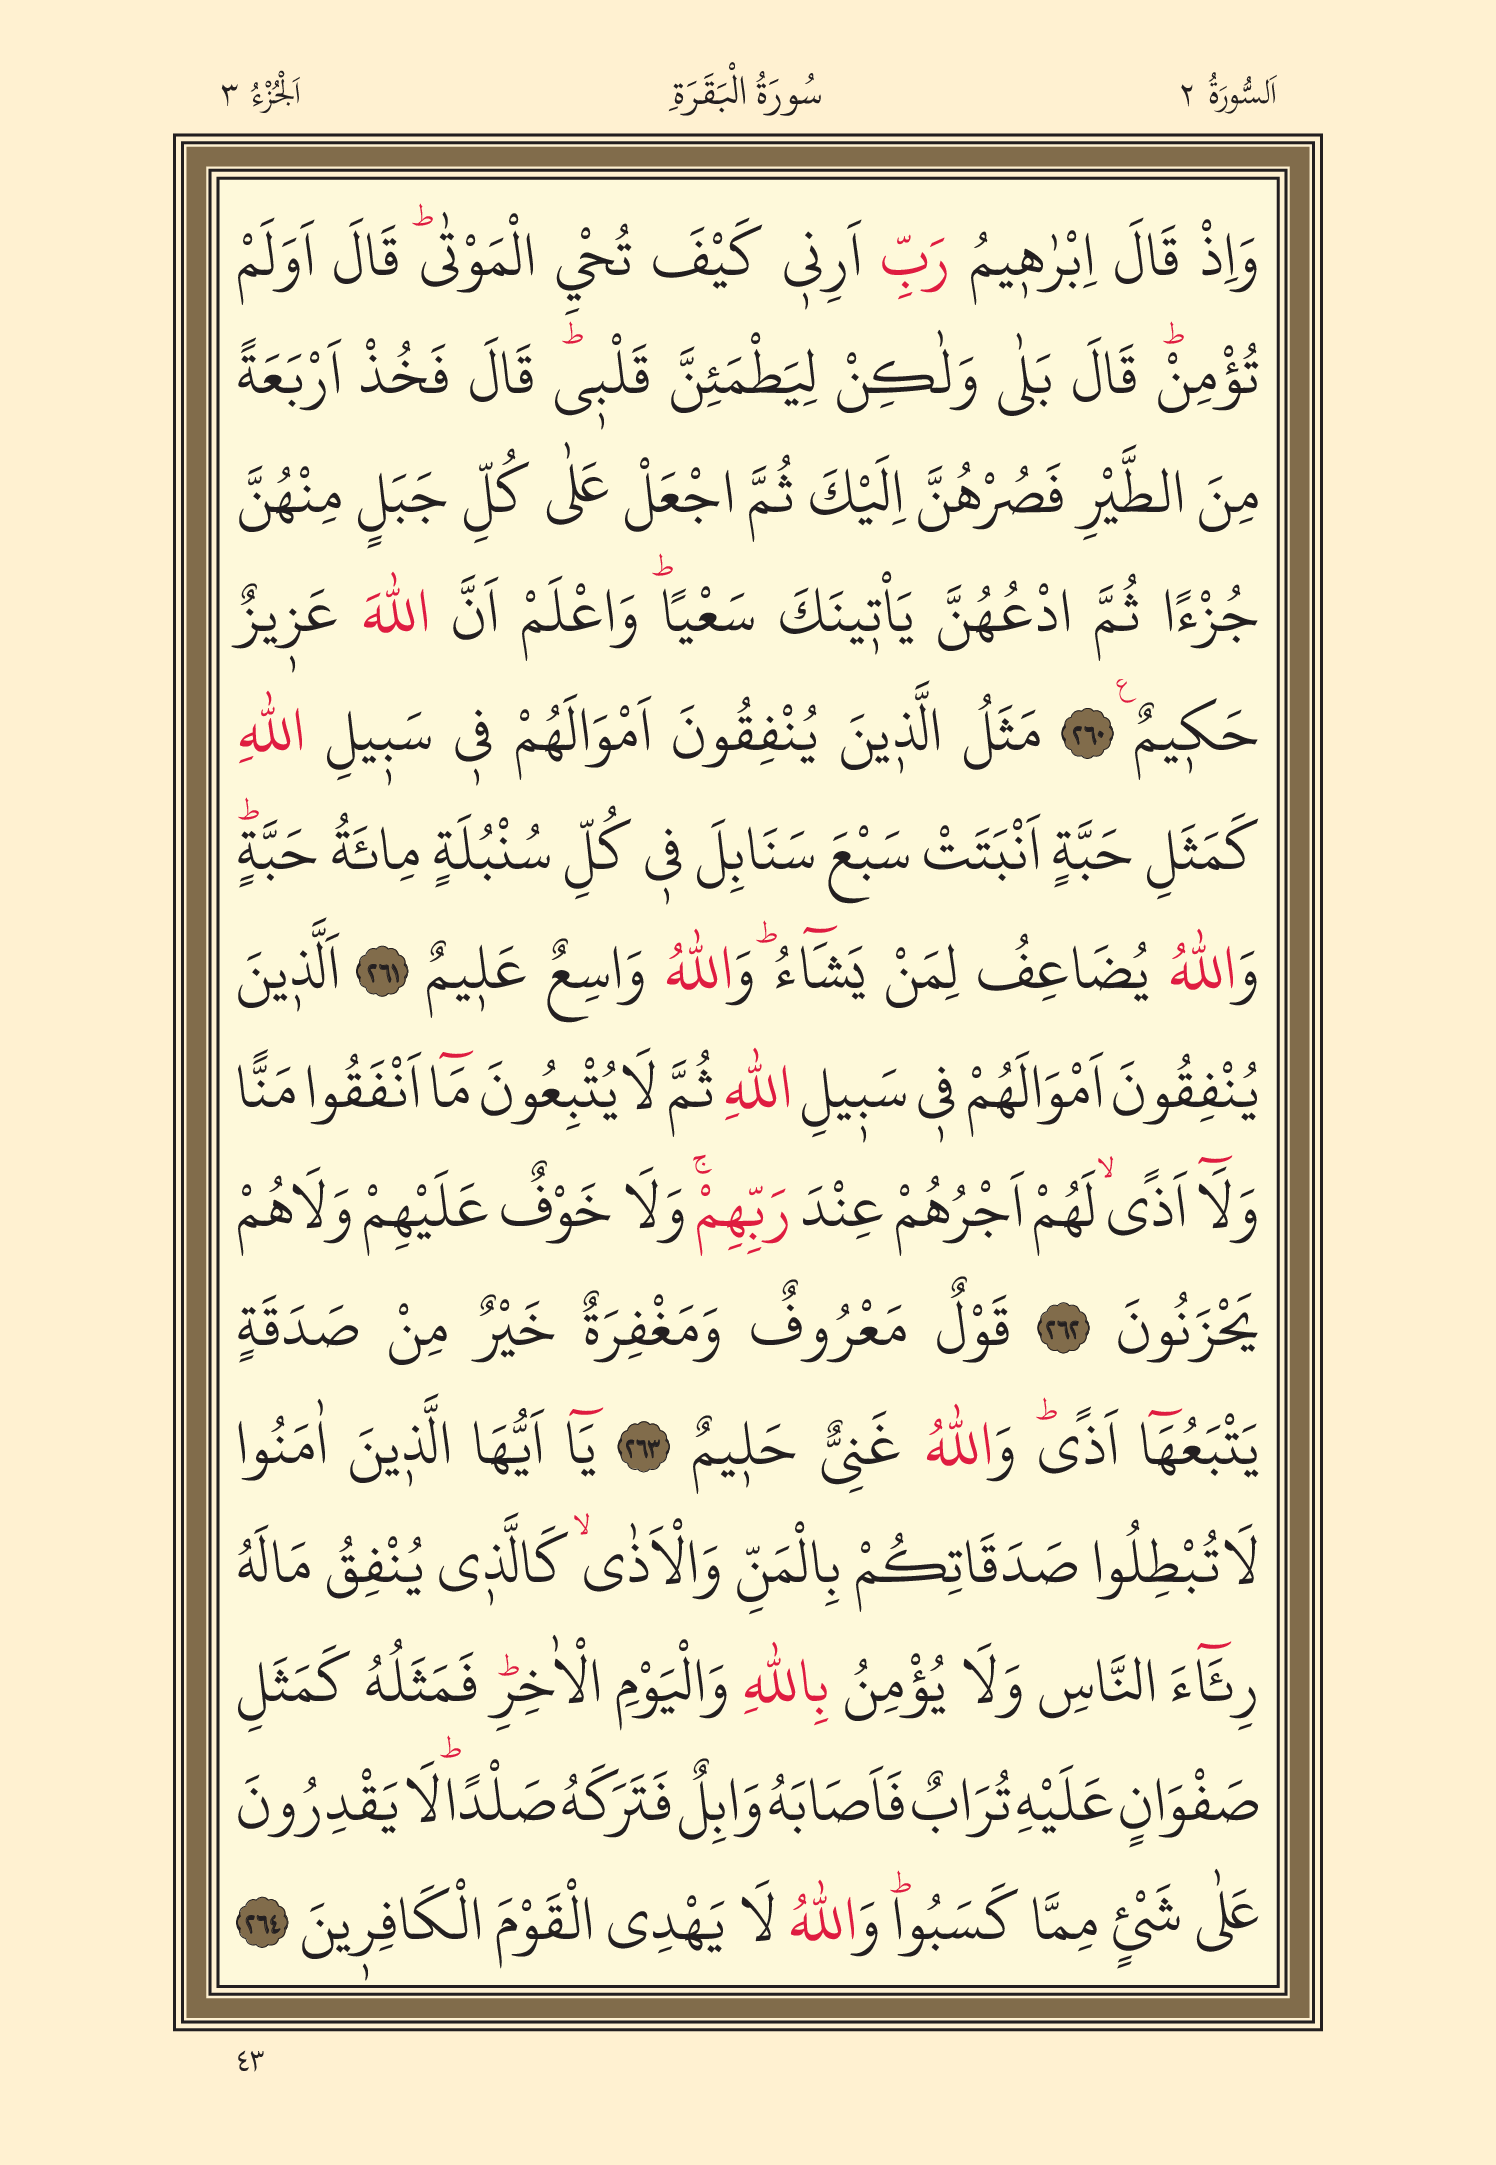 اَلسُّورَةُ ٢ سُورَةُ الْبَقَرَةِ اَلْجُزْءُ ٣
وَاِذْ قَالَ اِبْرٰه۪يمُ رَبِّ اَرِن۪ي كَيْفَ تُحْيِ الْمَوْتٰىۜ قَالَ اَوَلَمْ
تُؤْمِنْۜ قَالَ بَلٰى وَلٰكِنْ لِيَطْمَئِنَّ قَلْب۪يۜ قَالَ فَخُذْ اَرْبَعَةً
مِنَ الطَّيْرِ فَصُرْهُنَّ اِلَيْكَ ثُمَّ اجْعَلْ عَلٰى كُلِّ جَبَلٍ مِنْهُنَّ
جُزْءًا ثُمَّ ادْعُهُنَّ يَأْت۪ينَكَ سَعْيًاۜ وَاعْلَمْ اَنَّ اللّٰهَ عَز۪يزٌ
حَك۪يمٌ۟ ٢٦٠ مَثَلُ الَّذ۪ينَ يُنْفِقُونَ اَمْوَالَهُمْ ف۪ي سَب۪يلِ اللّٰهِ
كَمَثَلِ حَبَّةٍ اَنْبَتَتْ سَبْعَ سَنَابِلَ ف۪ي كُلِّ سُنْبُلَةٍ مِائَةُ حَبَّةٍۜ
وَاللّٰهُ يُضَاعِفُ لِمَنْ يَشَٓاءُۜ وَاللّٰهُ وَاسِعٌ عَل۪يمٌ ٢٦١ اَلَّذ۪ينَ
يُنْفِقُونَ اَمْوَالَهُمْ ف۪ي سَب۪يلِ اللّٰهِ ثُمَّ لَا يُتْبِعُونَ مَٓا اَنْفَقُوا مَنًّا
وَلَٓا اَذًىۙ لَهُمْ اَجْرُهُمْ عِنْدَ رَبِّهِمْۚ وَلَا خَوْفٌ عَلَيْهِمْ وَلَا هُمْ
يَحْزَنُونَ ٢٦٢ قَوْلٌ مَعْرُوفٌ وَمَغْفِرَةٌ خَيْرٌ مِنْ صَدَقَةٍ
يَتْبَعُهَٓا اَذًىۜ وَاللّٰهُ غَنِيٌّ حَل۪يمٌ ٢٦٣ يَٓا اَيُّهَا الَّذ۪ينَ اٰمَنُوا
لَا تُبْطِلُوا صَدَقَاتِكُمْ بِالْمَنِّ وَالْاَذٰىۙ كَالَّذ۪ي يُنْفِقُ مَالَهُ
رِئَٓاءَ النَّاسِ وَلَا يُؤْمِنُ بِاللّٰهِ وَالْيَوْمِ الْاٰخِرِۜ فَمَثَلُهُ كَمَثَلِ
صَفْوَانٍ عَلَيْهِ تُرَابٌ فَاَصَابَهُ وَابِلٌ فَتَرَكَهُ صَلْدًاۜ لَا يَقْدِرُونَ
عَلٰى شَيْءٍ مِمَّا كَسَبُواۜ وَاللّٰهُ لَا يَهْدِي الْقَوْمَ الْكَافِر۪ينَ ٢٦٤
٤٣